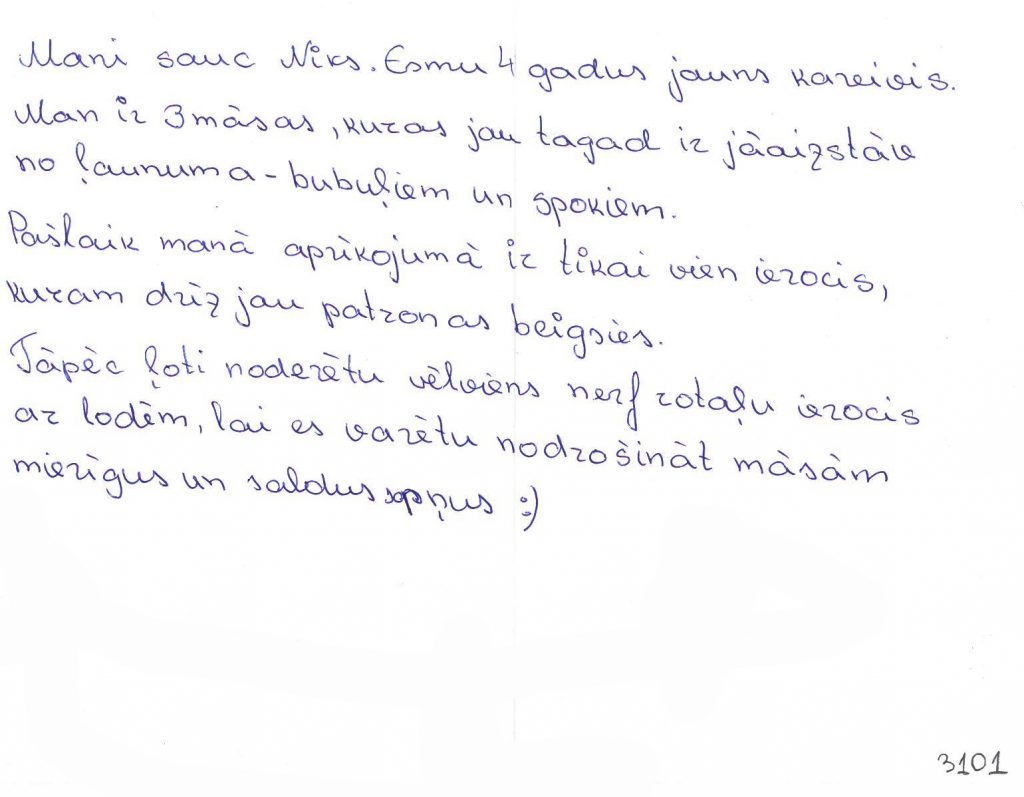 Mani sauc Niks. Esmu 4 gadus jauns kareivis.
Man ir 3 māsas, kuras jau tagad ir jāaizstāv
no ļaunuma - bubuļiem un spokiem.
Pašlaik manā aprīkojumā ir tikai vien ierocis,
kuram drīz jau patronas beigsies.
Tāpēc ļoti noderētu vēlviens nerf rotaļu ierocis
ar lodēm, lai es varētu nodrošināt māsām
mierīgus un saldus sapņus :)
3101